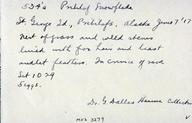 534a Pribilof Snowflake
St. George Id, Pribilofs, Alaska June 7'17
Nest of grass and weed stems
lined with fox hair and least
auklet feathers. In crevice of rock
Set 1029
5 eggs.
Dr. G. Dallas Hanna Collection
MCZ 3279